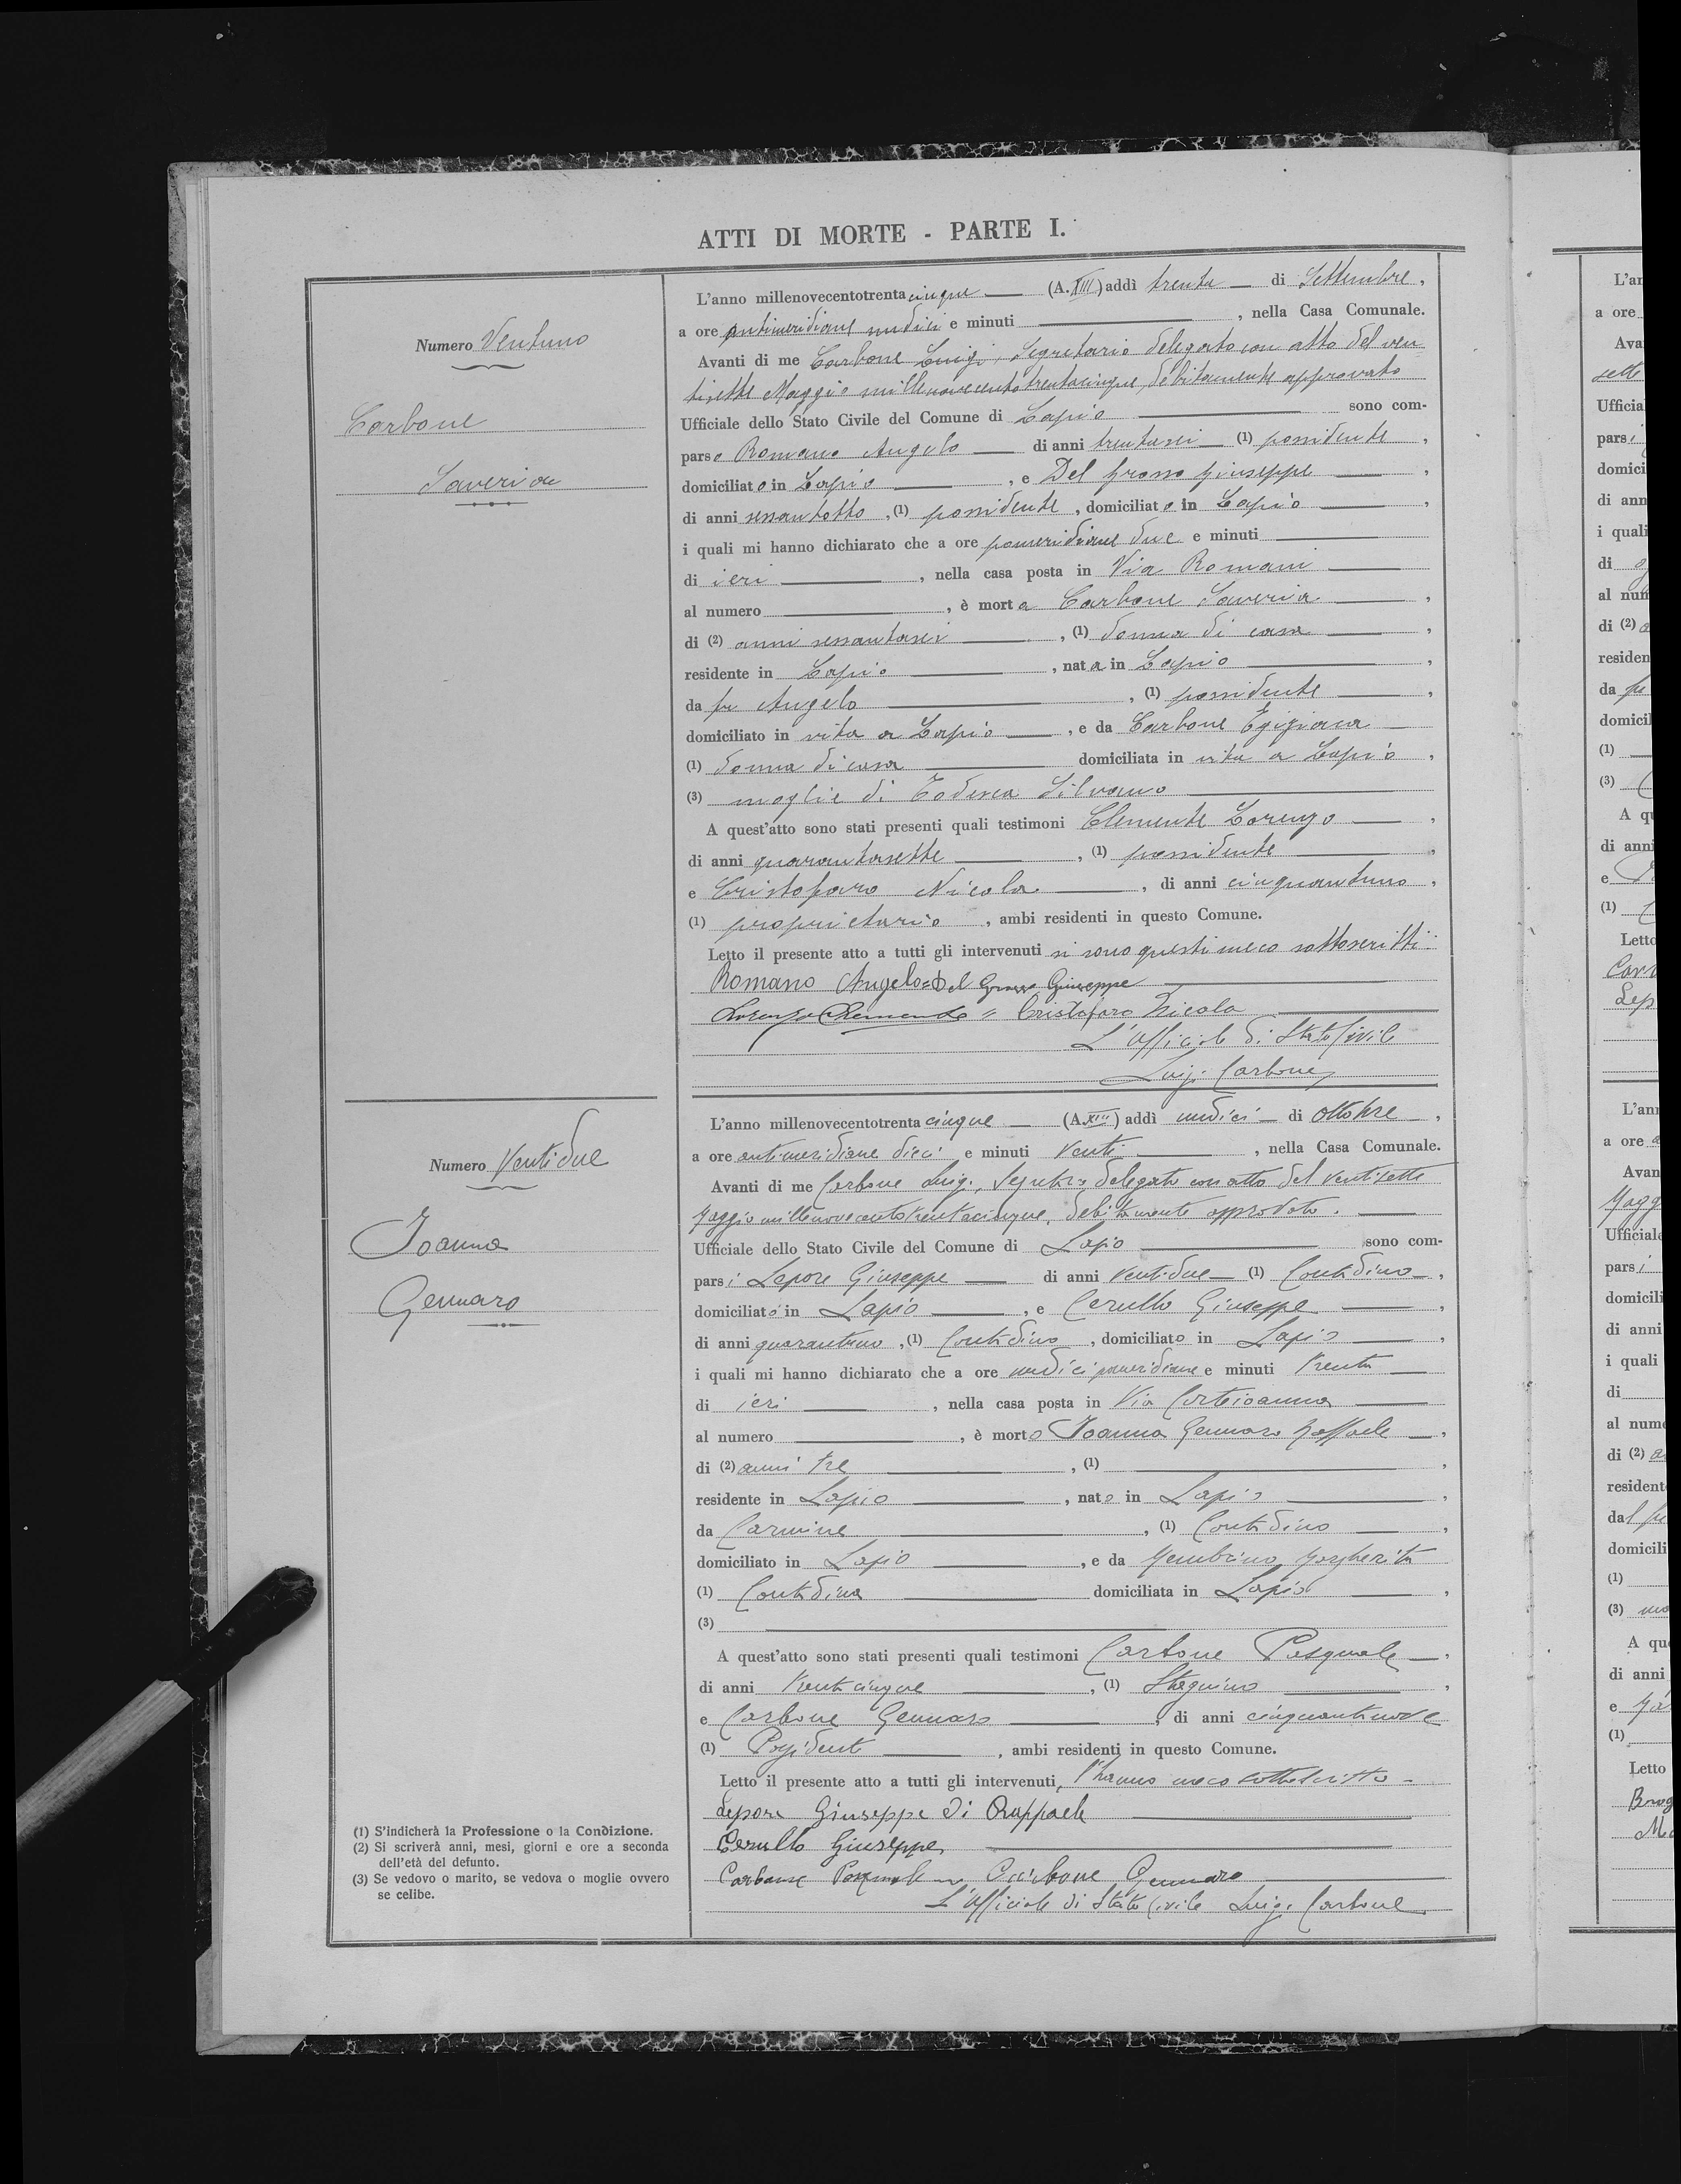 ATTI DI MORTE - PARTE I.
Numero Ventuno
Carbone
Saveria
L'anno millenovecentotrentacinque (A. XIII) addì trenta di Settembre,
a ore antimeridiane undici e minuti , nella Casa Comunale.
Avanti di me Carbone Luigi, Segretario delegato con atto del ven
tisette Maggio millenovecentotrentacinque, debitamente approvato
Ufficiale dello Stato Civile del Comune di Lapio sono com-
parso Romano Angelo di anni trentasei (1) possidente,
domiciliato in Lapio, e Del Grosso Giuseppe,
di anni sessantotto, (1) possidente, domiciliato in Lapio,
i quali mi hanno dichiarato che a ore pomeridiane due e minuti
di ieri, nella casa posta in Via Romani
al numero , è morta Carbone Saveria,
di (2) anni sessantasei, (1) donna di casa,
residente in Lapio, nata in Lapio,
da fu Angelo, (1) possidente,
domiciliato in vita a Lapio, e da Carbone Egiziaca
(1) donna di casa domiciliata in vita a Lapio,
(3) moglie di Silvano
A quest'atto sono stati presenti quali testimoni Clemente Lorenzo,
di anni quarantasette, (1) possidente,
e Cristofaro Nicola, di anni cinquantuno,
(1) proprietario, ambi residenti in questo Comune.
Letto il presente atto a tutti gli intervenuti si sono questi meco sottoscritti:
Romano Angelo = Del Grosso Giuseppe
Lorenzo Clemente = Cristofaro Nicola
L'Ufficiale di Stato Civile
Luigi Carbone
Numero Ventidue
Ioanna
Gennaro
L'anno millenovecentotrentacinque (A. XIII) addì undici di ottobre,
a ore antimeridiane dieci e minuti Venti, nella Casa Comunale.
Avanti di me Carbone Luigi, Segretario delegato con atto del ventisette
Maggio millenovecentotrentacinque, debitamente approvato.
Ufficiale dello Stato Civile del Comune di Lapio sono com-
parsi Lepore Giuseppe di anni Ventidue (1) Contadino,
domiciliato in Lapio, e Cerullo Giuseppe,
di anni quarantuno, (1) Contadino, domiciliato in Lapio,
i quali mi hanno dichiarato che a ore undici pomeridiane e minuti trenta
di ieri, nella casa posta in Via Corteioanna
al numero , è morto Ioanna Gennaro Raffaele,
di (2) anni tre, (1) ,
residente in Lapio, nato in Lapio,
da Carmine, (1) Contadino,
domiciliato in Lapio, e da Membrino Margherita
(1) Contadina domiciliata in Lapio,
(3)
A quest'atto sono stati presenti quali testimoni Carbone Pasquale,
di anni Venticinque, (1) Stagnino,
e Carbone Gennaro, di anni cinquantanove
(1) Possidente, ambi residenti in questo Comune.
Letto il presente atto a tutti gli intervenuti, l'hanno meco sottoscritto -
Lepore Giuseppe di Raffaele
Cerullo Giuseppe
Carbone Pasquale Carbone Gennaro
L'Ufficiale di Stato Civile Luigi Carbone
(1) S'indicherà la Professione o la Condizione.
(2) Si scriverà anni, mesi, giorni e ore a seconda
dell'età del defunto.
(3) Se vedovo o marito, se vedova o moglie ovvero
se celibe.